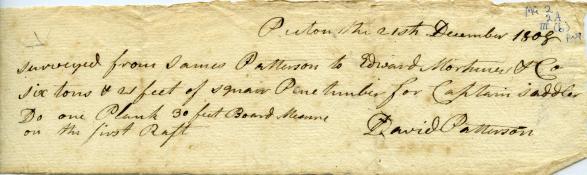 Picton the 21st December 1808
surveyed from James Patterson to Edward Mortimer & Co
six tons & 21 feet of squair Pine timber for Captain Saddler
Do one Plank 30 feet Board Measure
on the first Raft
David Patterson